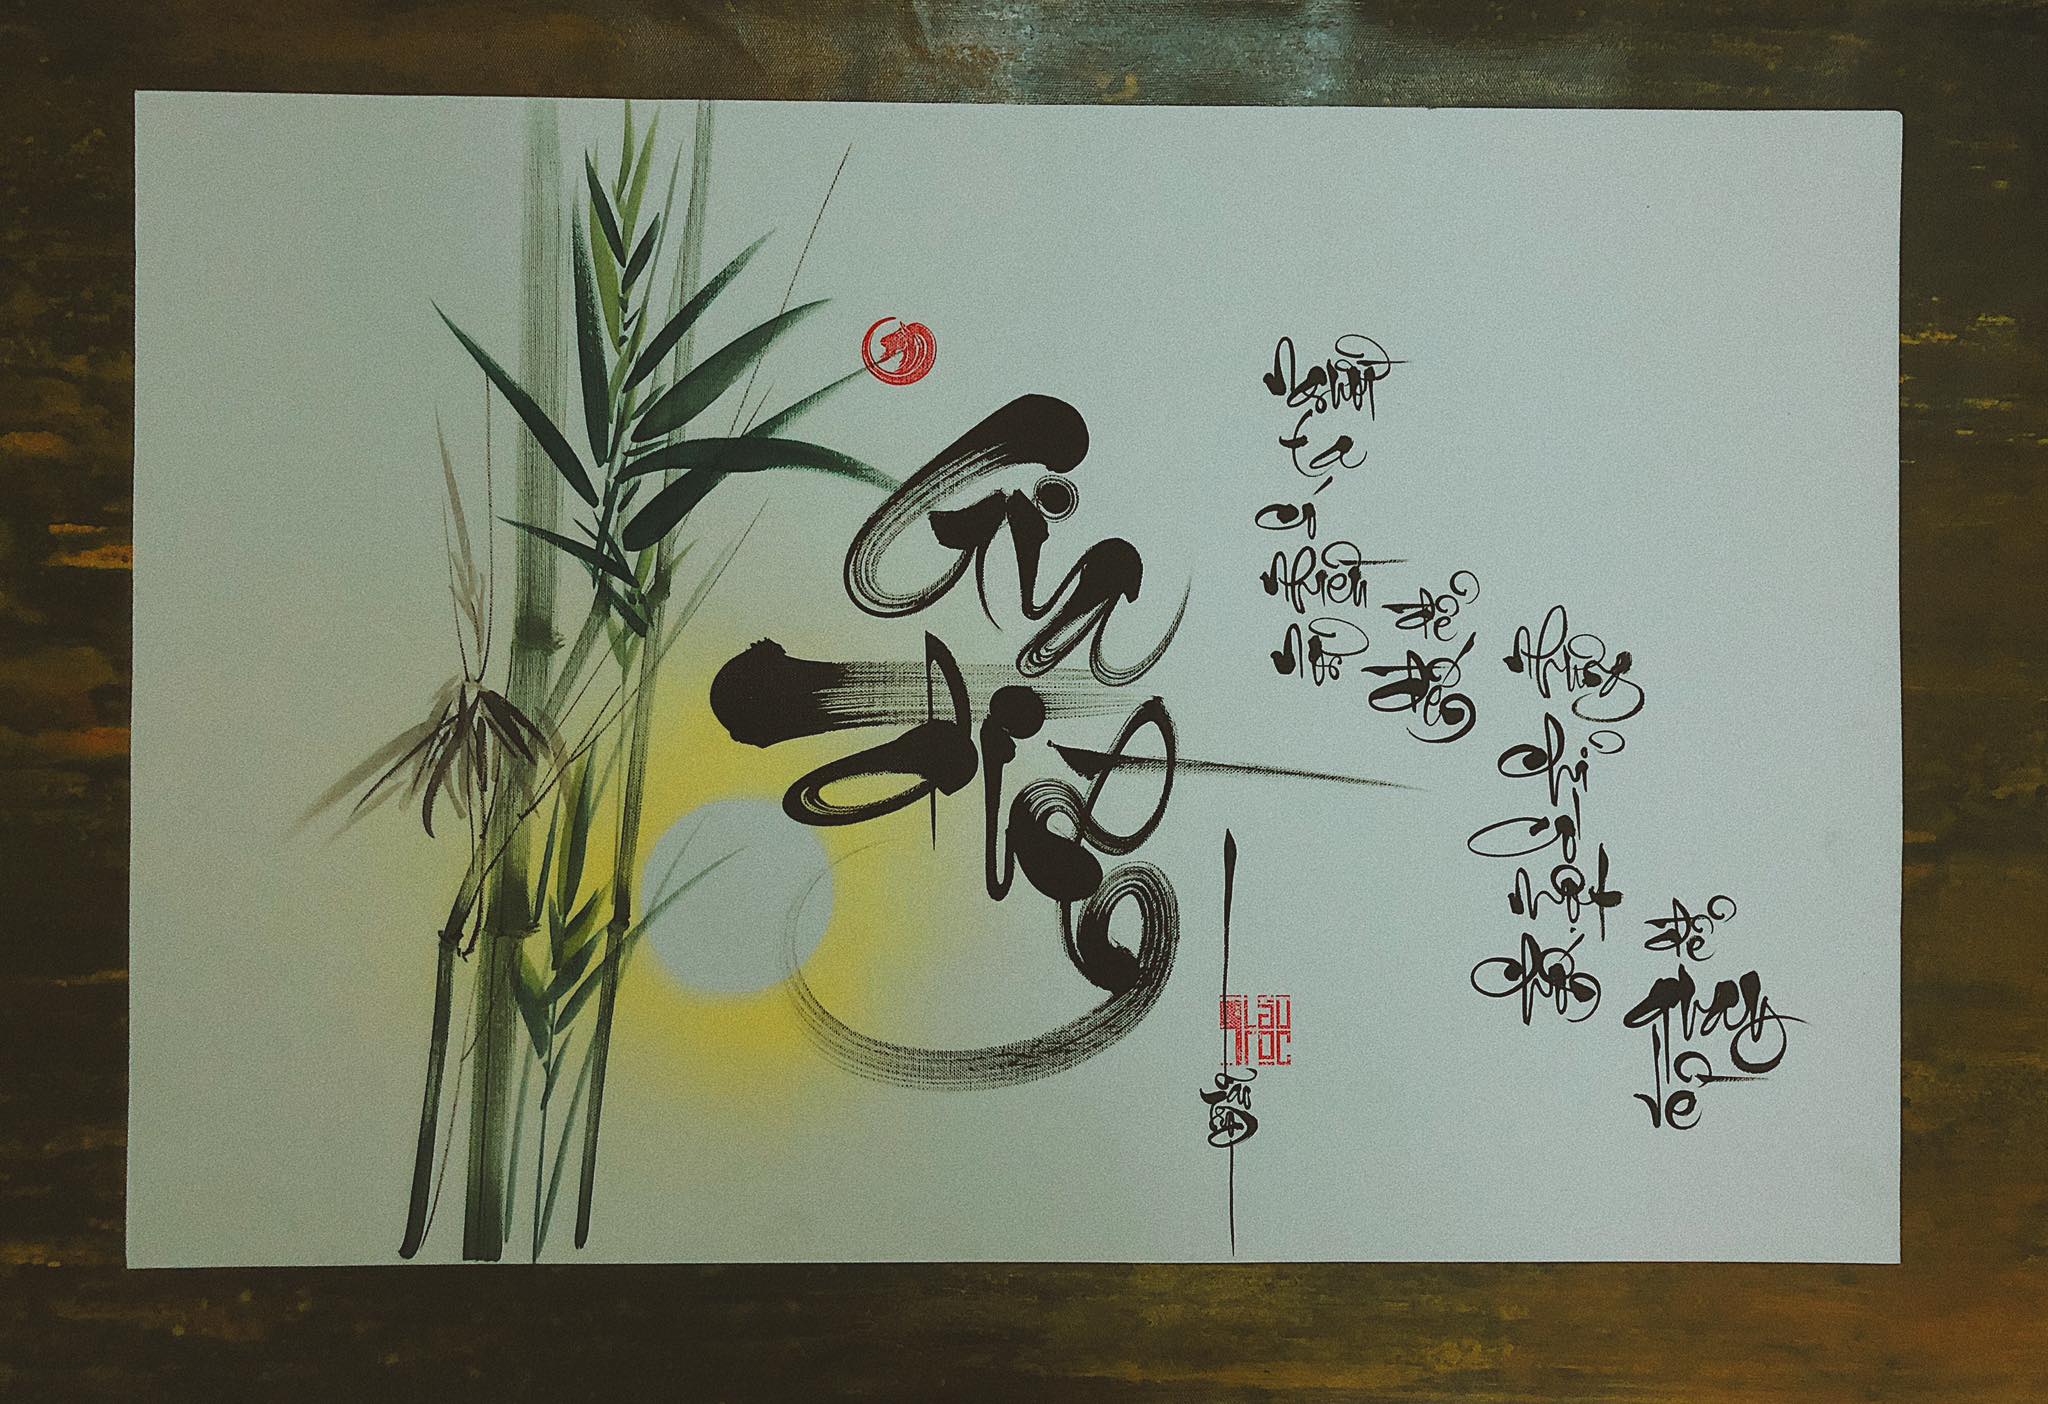 Gia
đình
Người
ta
có
nhiều
nơi
để
đến
Nhưng
chỉ
có
một
chốn
để
quay
về